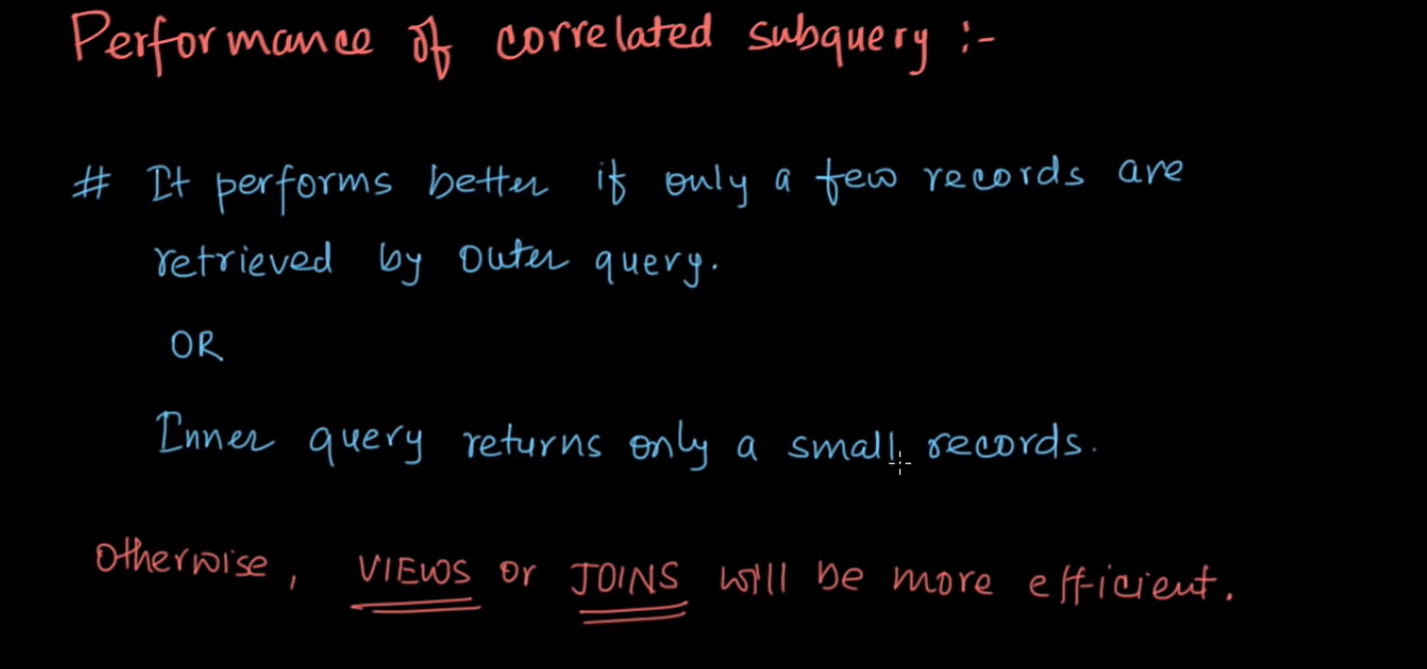 Performance of correlated subquery :-
# It performs better if only a few records are
retrieved by outer query.
OR
Inner query returns only a small records.
Otherwise, VIEWS or JOINS will be more efficient.